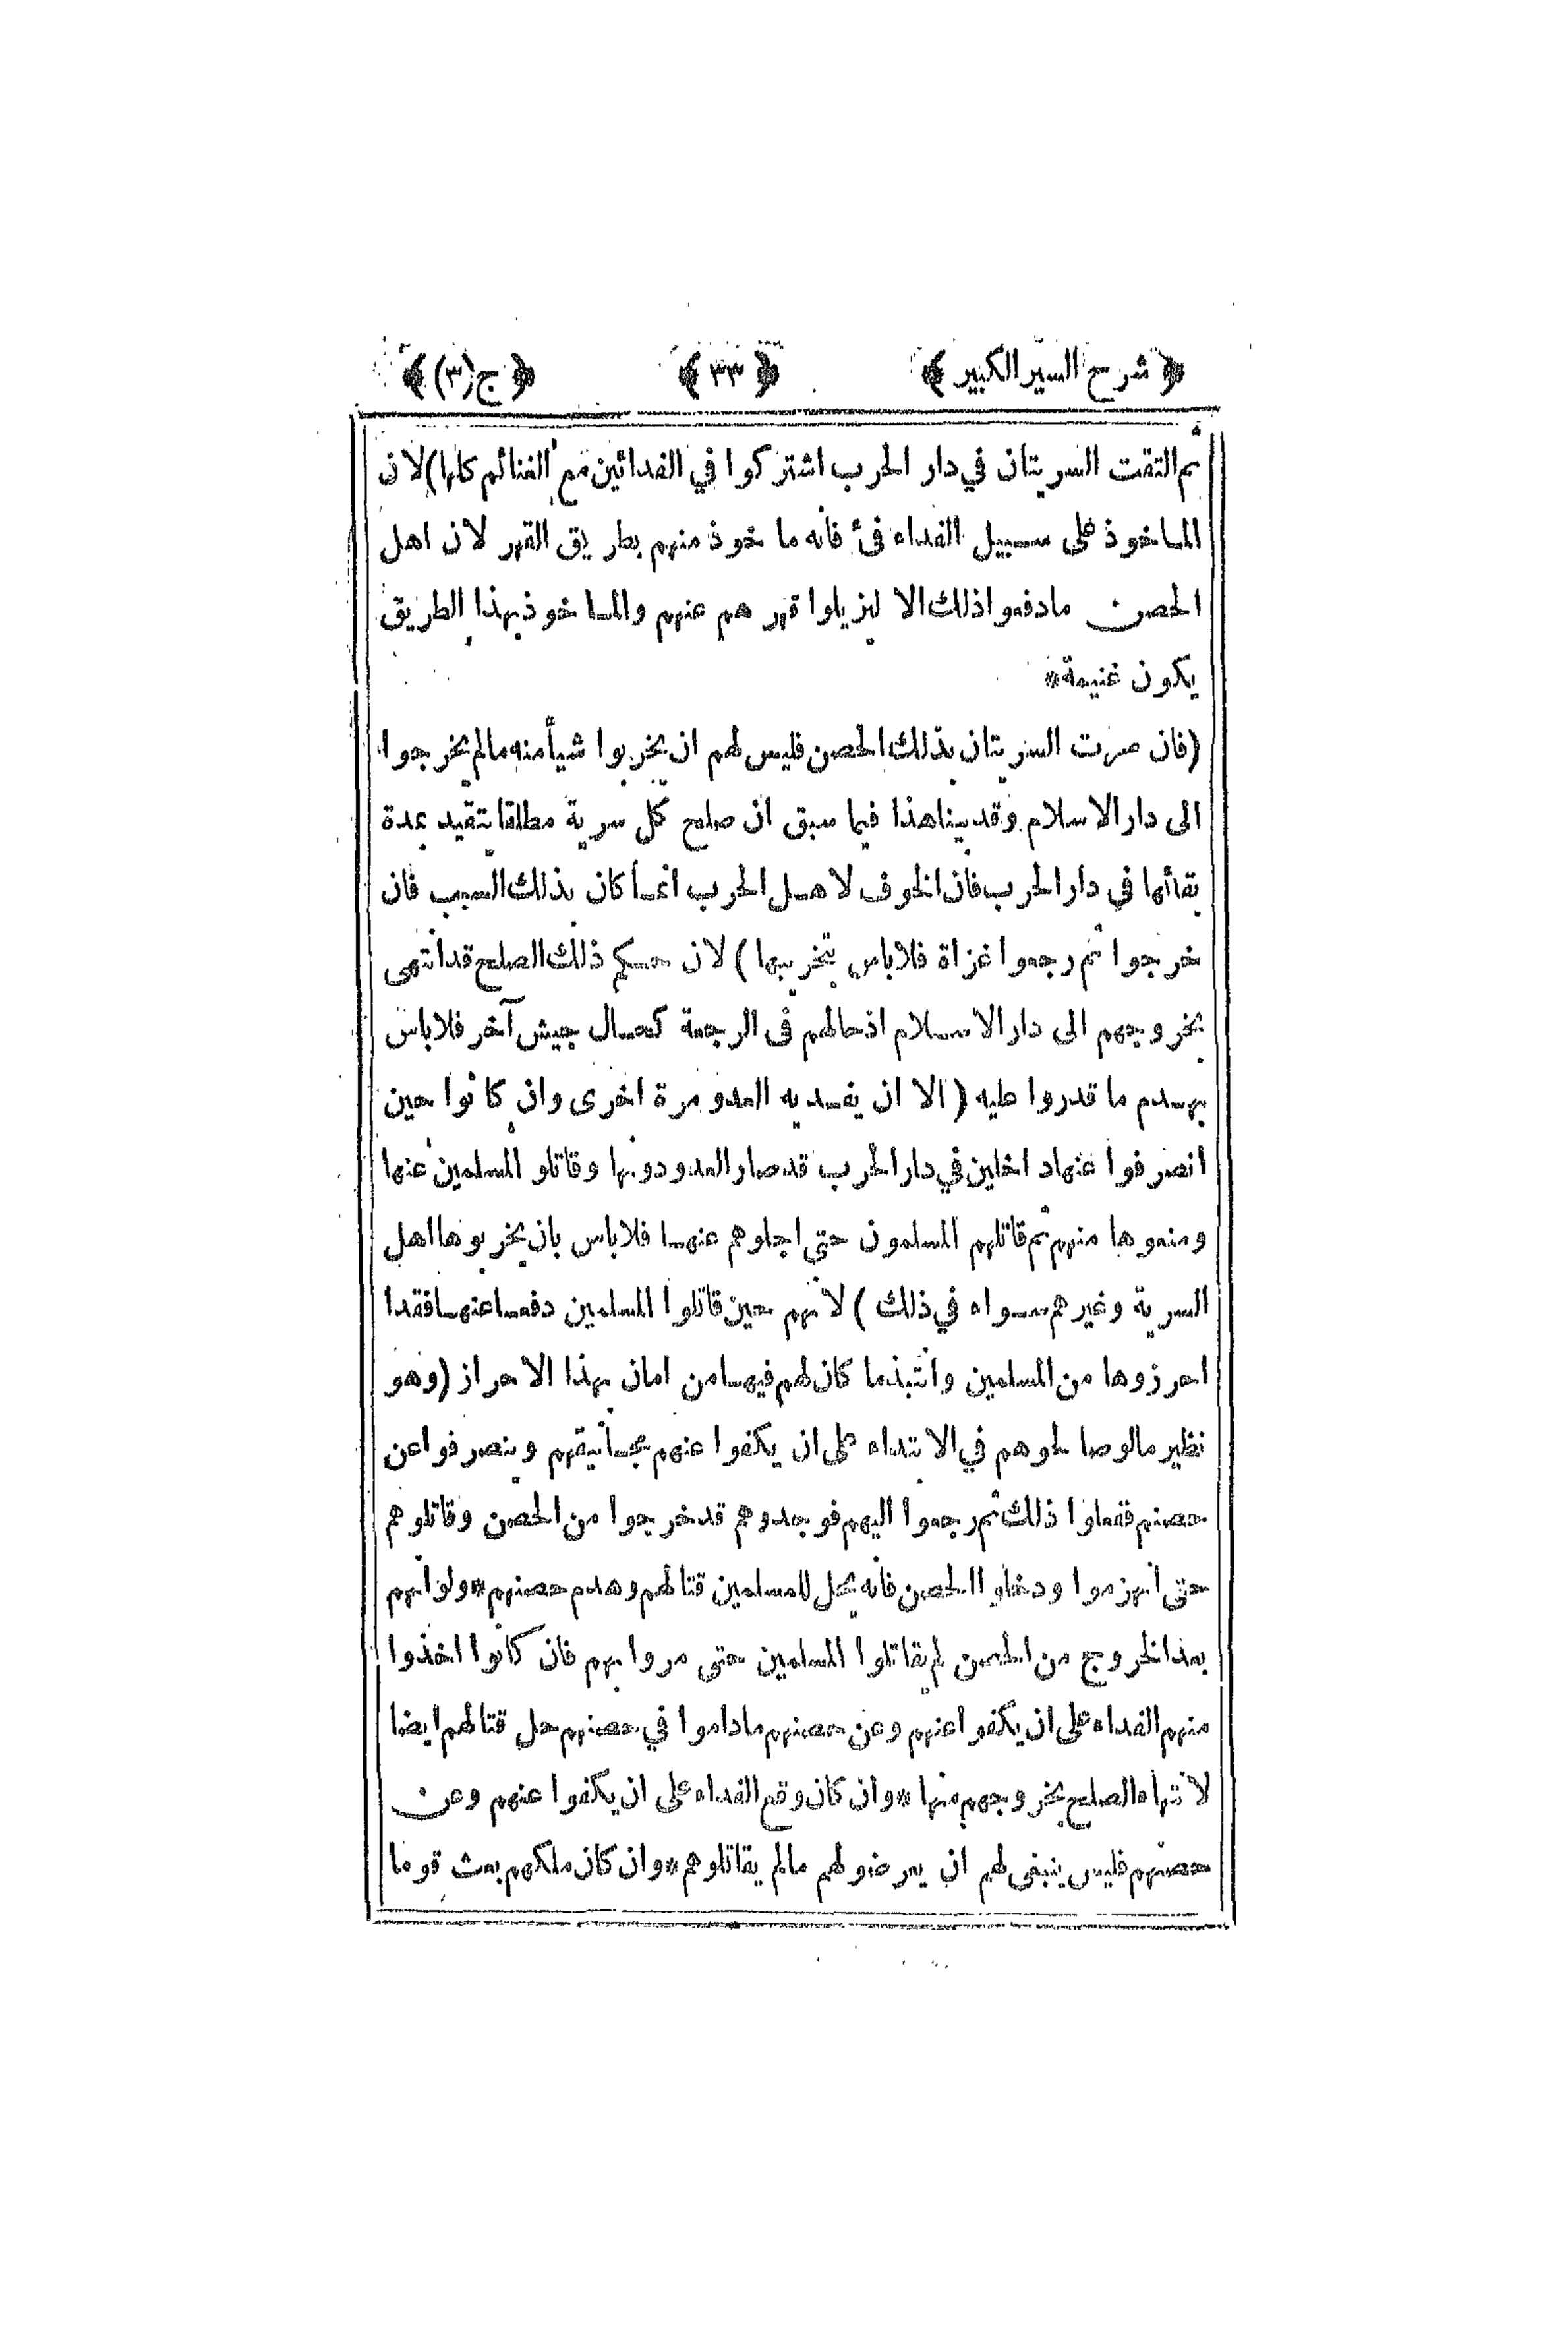 ﴿ شرح السير الكبير ﴾ ﴿ ٣٣ ﴾ ﴿ ج (٣) ﴾
ثم التقت السريتان في دار الحرب اشتركوا في الفدائين مع الغنائم كلها) لان
الماخوذ على سبيل الفداء فئ فانه ماخوذ منهم بطريق القهر لان اهل
الحصن مادفعوا ذلك الا ليزيلوا قهرهم عنهم والماخوذ بهذا الطريق
يكون غنيمة*
(فان مرت السريتان بذلك الحصن فليس لهم ان يخربوا شيأ منه مالم يخرجوا
الى دار الاسلام وقد بينا هذا فيما سبق ان صلح كل سرية مطلقا يتقيد بمدة
بقائها في دار الحرب فان الخوف لاهل الحرب انما كان بذلك السبب فان
خرجوا ثم رجعوا غزاة فلاباس بتخريبها) لان حكم ذلك الصلح قد انتهى
بخروجهم الى دار الاسلام اذحالهم فى الرجعة كحال جيش آخر فلاباس
بهدم ما قدروا عليه (الا ان يفديه العدو مرة اخرى وان كانوا حين
انصرفوا عنها داخلين في دار الحرب قد صار العدو دونها وقاتلو المسلمين عنها
ومنعوها منهم ثم قاتلهم المسلمون حتى اجلوهم عنها فلاباس بان يخربوها اهل
السرية وغيرهم سواء في ذلك) لانهم حين قاتلوا المسلمين دفعا عنها فقدا
احرزوها من المسلمين وانتبذما كان لهم فيها من امان بهذا الاحراز (وهو
نظير مالوصالحوهم في الابتداء على ان يكفوا عنهم مجانيقهم وينصرفوا عن
حصنهم ففعلوا ذلك ثم رجعوا اليهم فوجدوهم قد خرجوا من الحصن وقاتلوهم
حتى انهزموا ودخلوا الحصن فانه يحل للمسلمين قتالهم وهدم حصنهم* ولوانهم
بعد الخروج من الحصن لم يقاتلوا المسلمين حتى مروا بهم فان كانوا اخذوا
منهم الفداء على ان يكفوا عنهم وعن حصنهم ماداموا في حصنهم حل قتالهم ايضا
لانتهاء الصلح بخروجهم منها* وان كان وقع الفداء على ان يكفوا عنهم وعن
حصنهم فليس ينبغى لهم ان يعرضولهم مالم يقاتلوهم* وان كان ملكهم بعث قوما